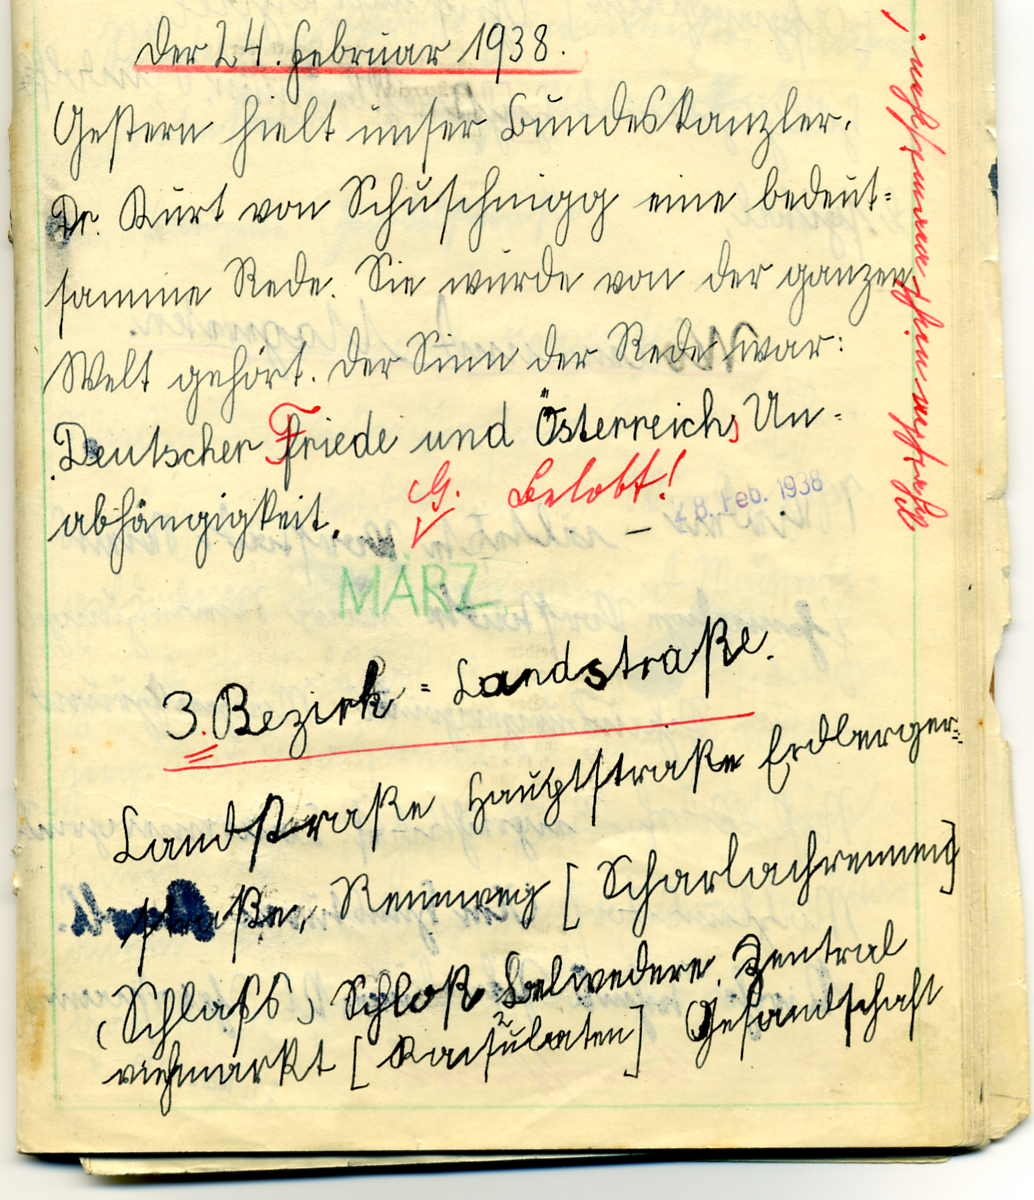 Der 24. Februar 1938.
Gestern hielt unser Bundeskanzler,
Dr. Kurt von Schuschnigg eine bedeut=
samme Rede. Sie wurde von der ganzen
Welt gehört. Der Sinn der Rede war:
Deutscher Friede und Österreichs Un=
abhängigkeit.
G. Belobt!
28. Feb. 1938
MÄRZ
3. Bezirk = Landstraße.
Landstraße Hauptstraße Erdberger=
straße, Rennweg [Scharlachrennen]
(Schlafs) Schloß Belvedere. Zentral
viehmarkt [Konsulaten] Gesandschaft